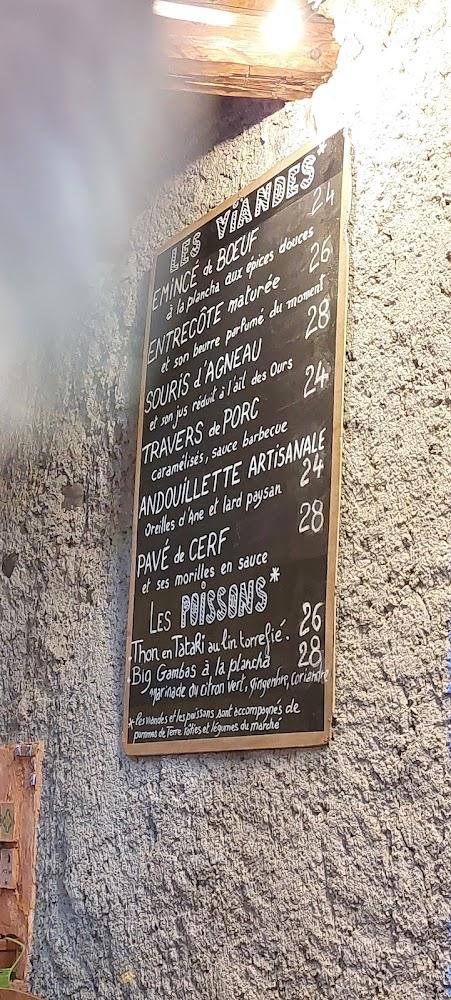 LES VIANDES*
EMINCÉ de BŒUF 24
à la plancha aux épices douces
ENTRECÔTE maturée 26
et son beurre parfumé du moment
SOURIS d'AGNEAU 28
et son jus réduit à l'ail des Ours
TRAVERS de PORC 24
caramélisés, sauce barbecue
ANDOUILLETTE ARTISANALE
Oreilles d'Ane et lard paysan 24
PAVÉ de CERF 28
et ses morilles en sauce
LES POISSONS*
Thon en Tataki au lin torréfié. 26
Big Gambas à la plancha 28
Marinade du citron vert, gingembre, coriandre
*les viandes et les poissons sont accompagnés de
pommes de terre rôties et légumes du marché